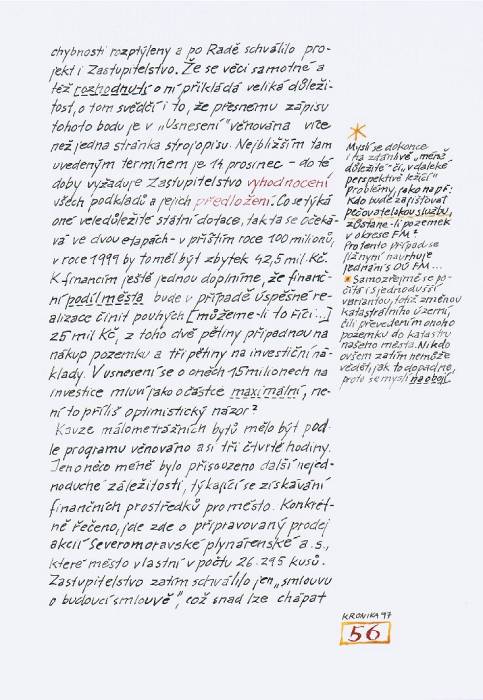 chybnosti rozptýleny a po Radě schválilo pro-
jekt i Zastupitelstvo. Že se věci samotné a
též rozhodnutí o ní přikládá veliká důleži-
tost, o tom svědčí i to, že přesnému zápisu
tohoto bodu je v „Usnesení" věnována více
než jedna stránka strojopisu. Nejbližším tam
uvedeným termínem je 14. prosinec - do té
doby vyžaduje Zastupitelstvo vyhodnocení
všech podkladů a jejich předložení. Co se týká
oné veledůležité státní dotace, tak ta se očeká-
vá ve dvou etapách - v příštím roce 100 milionů,
v roce 1999 by to měl být zbytek 42,5 mil. Kč.
K financím ještě jednou doplníme, že finanč-
ní podíl města bude v případě úspěšné re-
alizace činit pouhých [můžeme-li to říci...]
25 mil Kč, z toho dvě pětiny připadnou na
nákup pozemku a tři pětiny na investiční ná-
klady. V usnesení se o oněch 15 milionech na
investice mluví jako o částce maximální, ne-
ní to příliš optimistický názor?
Kauze málometrážních bytů mělo být pod-
le programu věnováno asi tři čtvrtě hodiny.
Jen o něco méně bylo přisouzeno další nejed-
noduché záležitosti, týkající se získávání
finančních prostředků pro město. Konkrét-
ně řečeno, jde zde o připravovaný prodej
akcií Severomoravské plynárenské a.s.,
které město vlastní v počtu 26.295 kusů.
Zastupitelstvo zatím schválilo jen „smlouvu
o budoucí smlouvě", což snad lze chápat
Myslí se dokonce
i na zdánlivě „méně
důležité" či „v daleké
perspektivě ležící"
problémy, jako např:
Kdo bude zajišťovat
pečovatelskou službu,
zůstane-li pozemek
v okrese FM?
Pro tento případ se
již nyní navrhuje
jednání s OÚ FM...
Samozřejmě se po-
čítá i s jednodušší
variantou, totiž změnou
katastrálního území,
čili převedením onoho
pozemku do katastru
našeho města. Nikdo
ovšem zatím nemůže
vědět, jak to dopadne,
proto se myslí na obojí.
KRONIKA 97
56